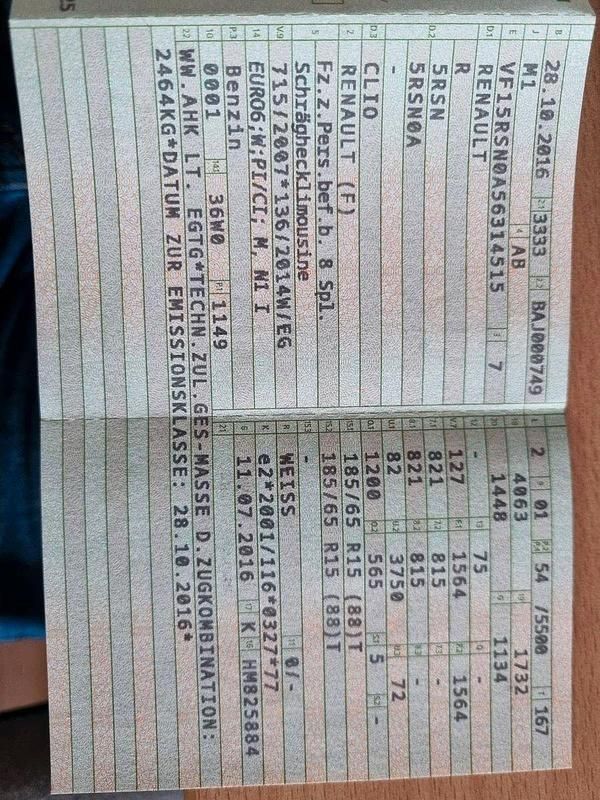 B 28.10.2016 2.1 3333 2.2 BAJ000749
J M1 4 AB
E VF15RSN0A56314515 3 7
D.1 RENAULT
R
D.2 5RSN
5RSN0A
-
D.3 CLIO
2 RENAULT (F)
5 Fz.z.Pers.bef.b. 8 Spl.
Schräghecklimousine
V.9 715/2007*136/2014W/EG
14 EURO6;W;PI/CI; M, N1 I
P.3 Benzin
10 0001 14.1 36W0 P.1 1149
L 2 9 01 P.2/P.4 54 /5500 T 167
18 4063 19 1732
20 1448 G 1134
12 - 13 75 Q -
V.7 127 F.1 1564 F.2 1564
7.1 821 7.2 815 7.3 -
8.1 821 8.2 815 8.3 -
U.1 82 U.2 3750 U.3 72
O.1 1200 O.2 565 S.1 5 S.2 -
15.1 185/65 R15 (88)T
15.2 185/65 R15 (88)T
15.3 -
R WEISS 11 0/-
K e2*2001/116*0327*77
6 11.07.2016 17 K 16 HM825884
21
22 WW.AHK LT. EGTG*TECHN.ZUL.GES-MASSE D.ZUGKOMBINATION:
2464KG*DATUM ZUR EMISSIONSKLASSE: 28.10.2016*